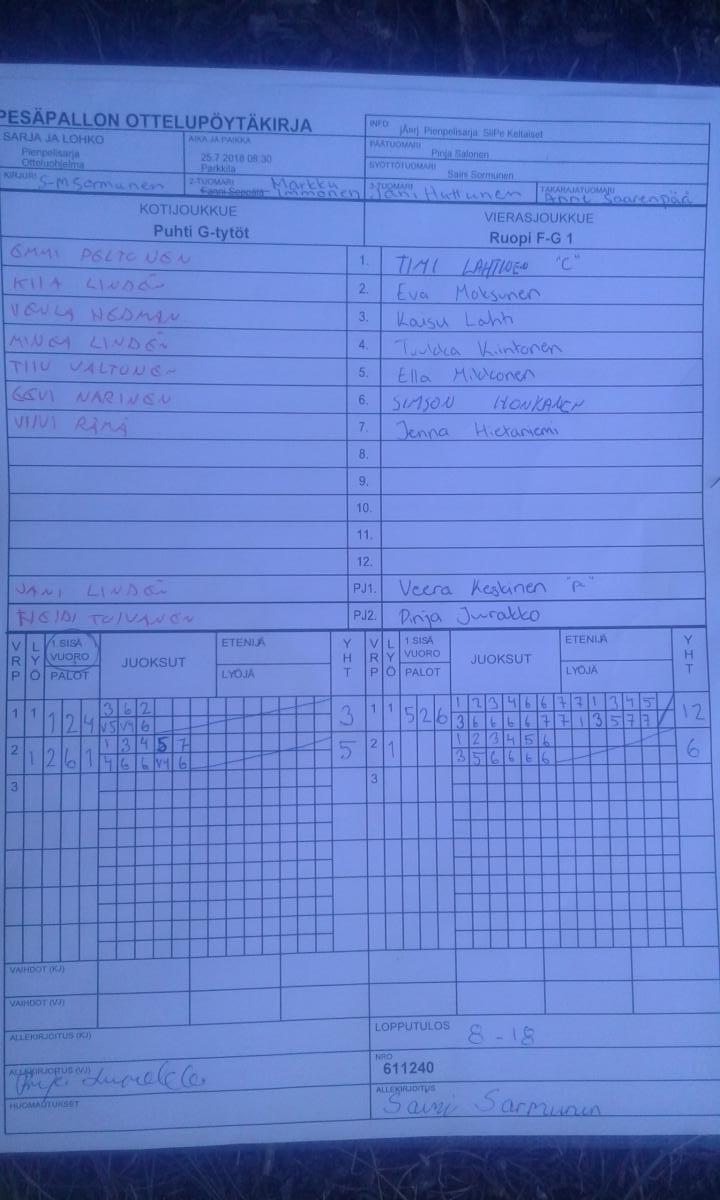 PESÄPALLON OTTELUPÖYTÄKIRJA
INFO jÄnrj. Pienpelisarja: SiiPe Keltaiset
SARJA JA LOHKO
Pienpelisarja
Otteluohjelma
AIKA JA PAIKKA
25.7.2018 08:30
Parkkila
PÄÄTUOMARI
Pinja Salonen
SYÖTTÖTUOMARI
Saini Sormunen
KIRJURI S-M Sormunen
2-TUOMARI Markku Immonen
3-TUOMARI Jani Huttunen
TAKARAJATUOMARI Anni Saarenpää
KOTIJOUKKUE
Puhti G-tytöt
VIERASJOUKKUE
Ruopi F-G 1
EMMI PELTONEN 1. TIMI LAHTINEN "C"
KIIA LINDÉN 2. Eva Moksunen
VENLA HEDMAN 3. Kaisu Lahti
MINEA LINDÉN 4. Tuukka Kiintonen
TIIU VALTONEN 5. Ella Mikkonen
EEVI NARINEN 6. SIMSON HONKANEN
VIIVI RÄMÄ 7. Jenna Hietaniemi
8.
9.
10.
11.
12.
JANI LINDÉN PJ1. Veera Keskinen
HEIDI TOIVANEN PJ2. Pinja Juurakko
VRP LYÖ 1.SISÄ VUORO PALOT JUOKSUT ETENIJÄ LYÖJÄ YHT VRP LYÖ 1.SISÄ VUORO PALOT JUOKSUT ETENIJÄ LYÖJÄ YHT
3 6 2 1 2 3 4 6 6 7 7 1 3 4 5
1 1 1 2 4 V5 V4 6 3 1 1 5 2 6 3 6 6 6 6 7 7 1 3 5 7 7 12
1 3 4 5 7 1 2 3 4 5 6
2 1 2 6 1 4 6 6 V4 6 5 2 1 3 5 6 6 6 6 6
3 3
VAIHDOT (KJ)
VAIHDOT (VJ)
ALLEKIRJOITUS (KJ)
LOPPUTULOS 8 - 18
ALLEKIRJOITUS (VJ)
NRO
611240
HUOMAUTUKSET
ALLEKIRJOITUS
Saini Sormunen